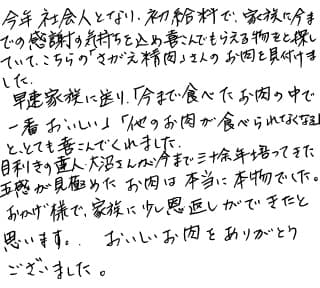 今年社会人となり、初給料で、家族に今ま
での感謝の気持ちを込め喜んでもらえる物をと探し
ていて、こちらの「さがえ精肉」さんのお肉を見付けま
した。
早速家族に送り、「今まで食べたお肉の中で
一番おいしい」「他のお肉が食べられてなくなる」
と、とても喜んでくれました。
目利きの達人・大沼さんが今まで三十余年培ってきた
五感が見極めたお肉は本当に本物でした。
おかげ様で、家族に少し恩返しができたと
思います。おいしいお肉をありがとう
ございました。